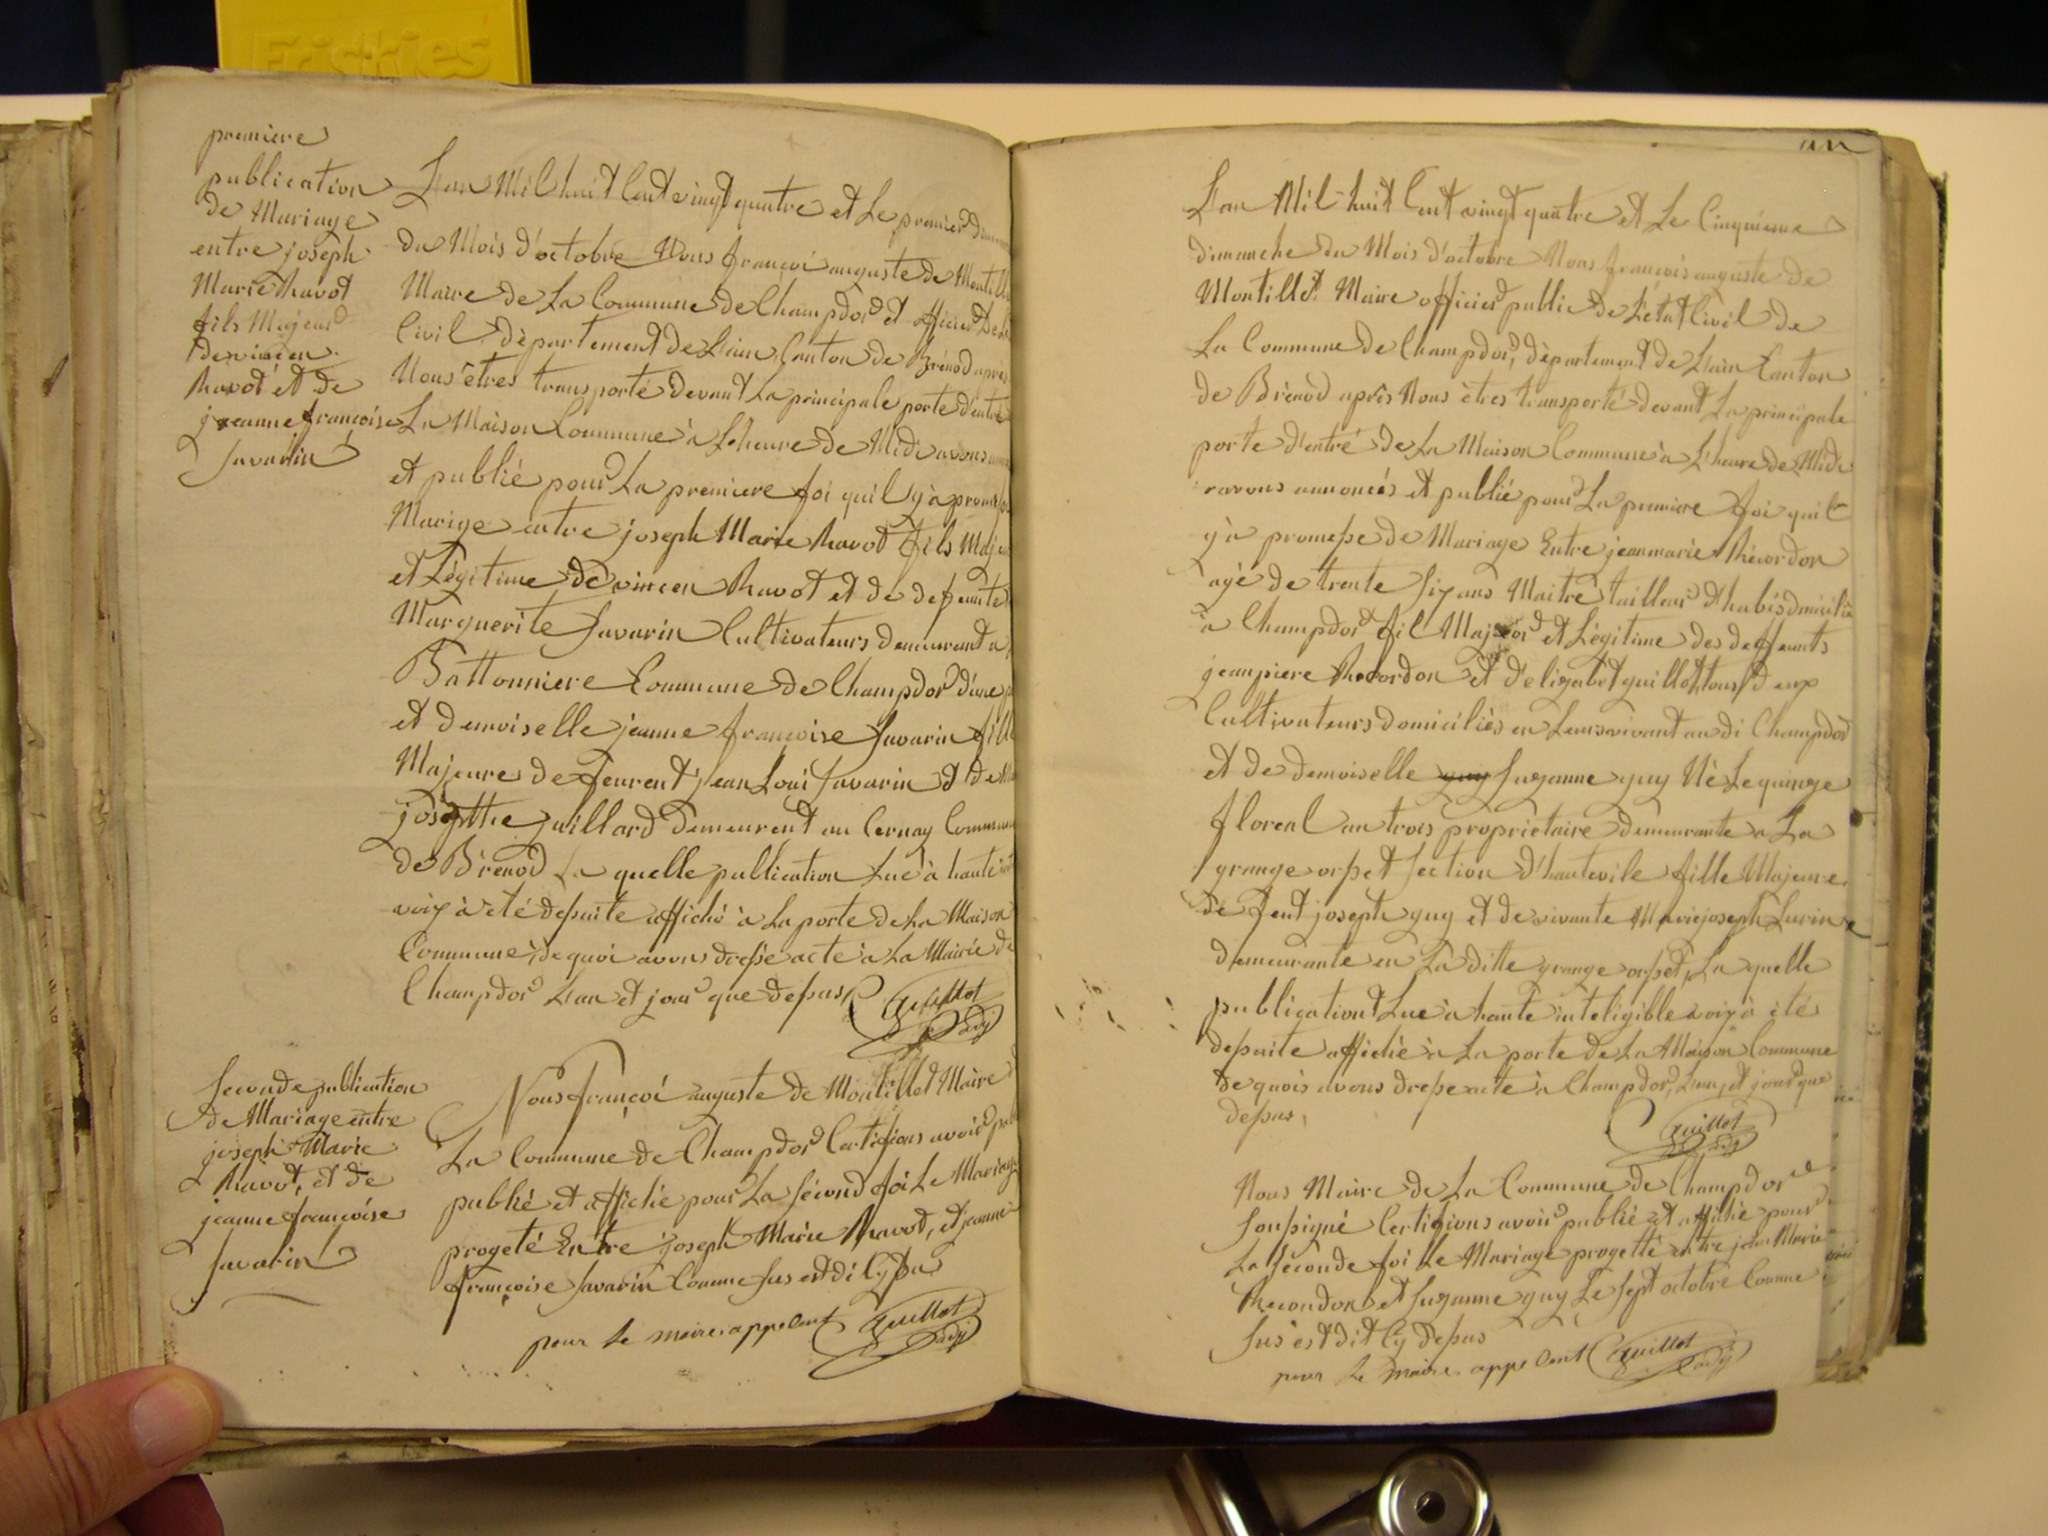 Friskies
premiere
publication
de Mariage
entre joseph
Marie Ravot
fils Majeur
de vincen
Ravot et de
jeanne françoise
Savarin
L'an Mil huit Cent vingt quatre et Le premier
du Mois d'octobre Nous françoi auguste de
Maire de La Commune de Champdor et officier
Civil, dèpartement de L'ain, Canton de Brénod après
Nous êtres transporté devant La principale porte d'entré
La Maison Commune à L'heure de Midi avons
et publié pour La premiere foi quil y à
Marige entre joseph Marie Ravot fils
et Légitime de vincen Ravot et de defeunte
Marguerite Savarin Cultivateurs demeurent a
Battonniere Commune de Champdor d'une
et demoiselle jeanne françoise Savarin
Majeure de feurent jean Loui Savarin et de
josepthe juillard demeurent au Cernay Commune
de Brénod La quelle publication Lue à haute
voix à été desuite affiché à La porte de La Maison
Commune, de quoi avons dressé acte à La Mairie de
Champdor L'an et jour que desus
Guillot
adj
Seconde publication
de Mariage entre
joseph Marie
Ravot, et de
jeanne françoise
Savarin
Nous françoi auguste de Montillet Maire
La Commune de Champdor Certifions avoir
publié et affiché pour La Sécond foi Le Mariage
progeté Entre joseph Marie Ravot, et jeanne
françoise Savarin Comme Sus est di Cy
pour le maire appsent Guillot
adj
an
L'an Mil huit Cent vingt quatre et Le Cinquieme
dimanche du Mois d'octobre Nous françois auguste de
Montillet Maire officier public de L'état Civil de
La Commune de Champdor, dèpartement de L'ain Canton
de Brénod après Nous êtres transporté devant La principale
porte d'entré de La Maison Commune à L'heure de Midi
avons annoncés et publié pour La premiere foi quil
y à promesse de Mariage Entre jeanmarie Récordon
agé de trente Six ans Maitre tailleur d'habis domicilié
à Champdor fil Majeor et Légitime des deffeunts
jeanpiere Recordon et d'elizabet guillot, tous deux
Cultivateurs domiciliés en Leurs vivant au di Champdor
et de demoiselle guy Suzanne guy Né Le quinze
floreal an trois proprietaire demeurante a La
grange orset Section d'hautevile fille Majeure
de feut joseph guy et de vivante Mariejoseph
demeurante en La ditte grange orset, La quelle
publigationt Lue à haute inteligible voix à étés
desuite affiché à La porte de La Maison Commune
de quois avons dressé acte à Champdor, L'an, et jour que
desus,
Guillot
adj
Nous Maire de La Commune de Champdor
Sousigné Certifions avoir publié et affiché pour
La Séconde foi Le Mariage progetté entre jean Marie
Recondon et Suzanne guy Le Sept octobre Comme
Sus est dit Cy desus
pour le maire appsent Guillot
adj